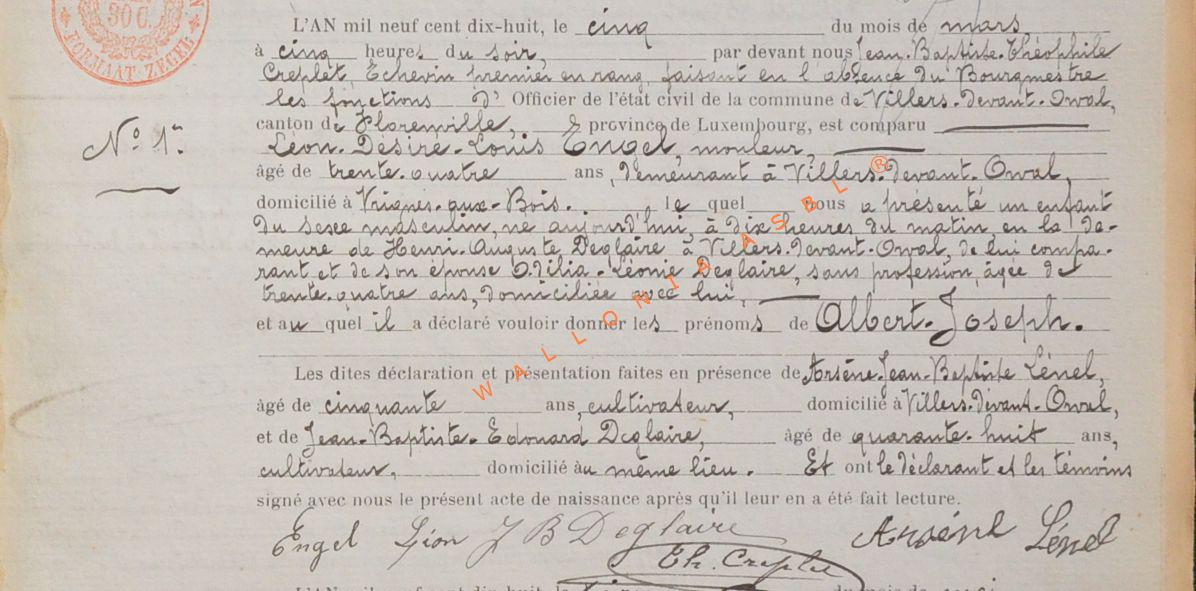 30 C.
FORMAAT-ZEGEL
L'AN mil neuf cent dix-huit, le cinq du mois de mars
à cinq heures du soir, par devant nous Jean-Baptiste-Théophile
Creplet, Echevin premier en rang, faisant en l'absence du Bourgmestre
les fonctions d'Officier de l'état civil de la commune de Villers-devant-Orval,
canton de Florenville, province de Luxembourg, est comparu
N° 1.
Léon-Désiré-Louis Engel, mouleur,
âgé de trente-quatre ans, demeurant à Villers-devant-Orval,
domicilié à Vrignes-aux-Bois. le quel nous a présenté un enfant
du sexe masculin, né aujourd'hui, à dix heures du matin, en la de-
meure de Henri-Auguste Deglaire à Villers-devant-Orval, de lui compa-
rant et de son épouse Odilia-Léonie Deglaire, sans profession, âgée de
trente-quatre ans, domiciliée avec lui,
et au quel il a déclaré vouloir donner les prénoms de Albert-Joseph.
WALLONIA ASBL ®
Les dites déclaration et présentation faites en présence de Arsène-Jean-Baptiste Lénel,
âgé de cinquante ans, cultivateur, domicilié à Villers-devant-Orval,
et de Jean-Baptiste-Edouard Deglaire, âgé de quarante-huit ans,
cultivateur, domicilié au même lieu. Et ont le déclarant et les témoins
signé avec nous le présent acte de naissance après qu'il leur en a été fait lecture.
Engel Léon J B Deglaire Arsène Lénel
Th. Creplet